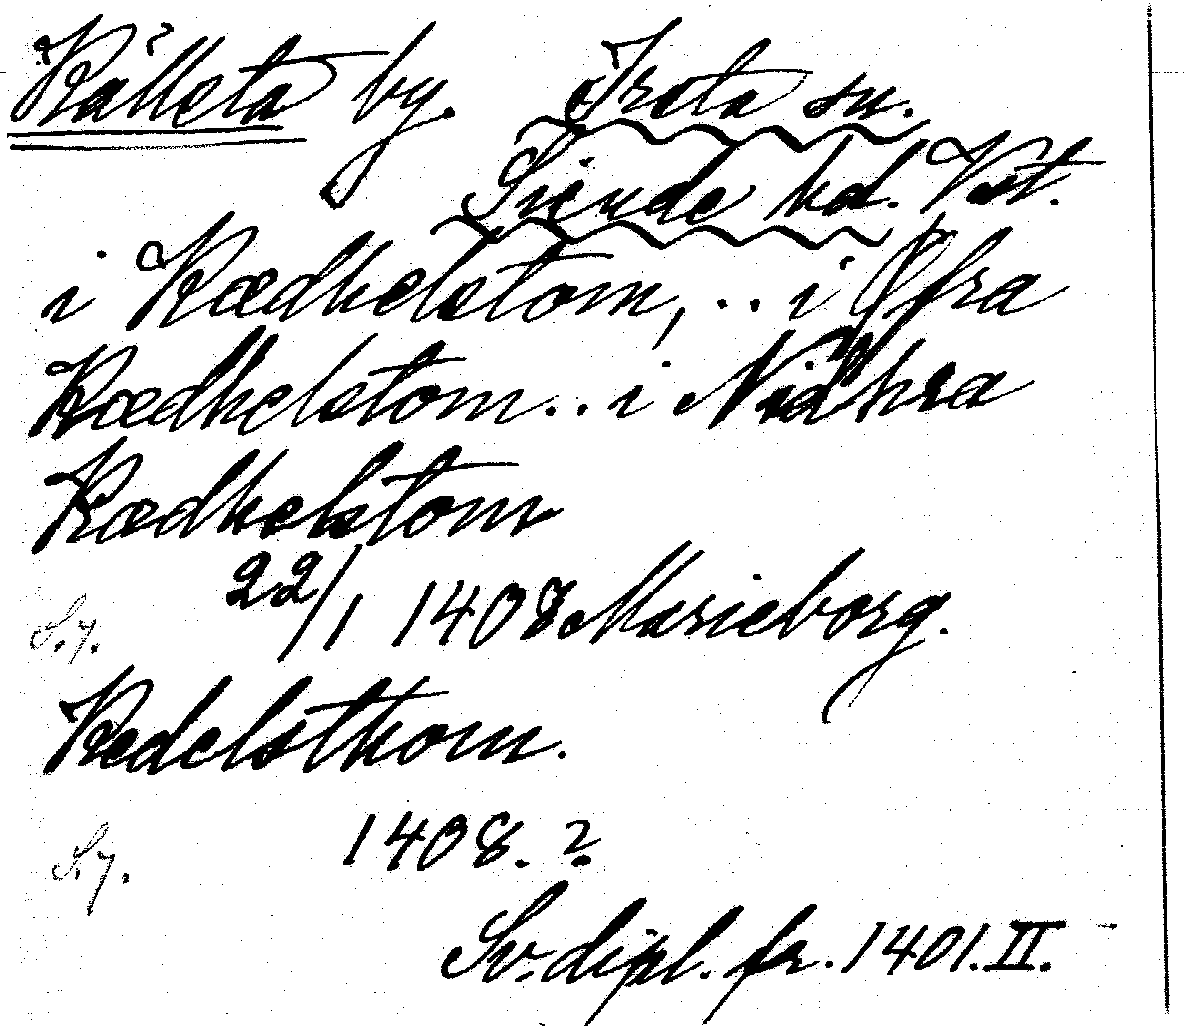 Källsta by. Irsta sn.
Siende hd. Vst.
i Kædhelstom, .. i Øfra
Kædhelstom .. i Nidhra
Kædhelstom
22/1 1408 Marieborg.
S.y.
Kedelsthom.
1408. ?
S.y.
Sv. dipl. fr. 1401. II.